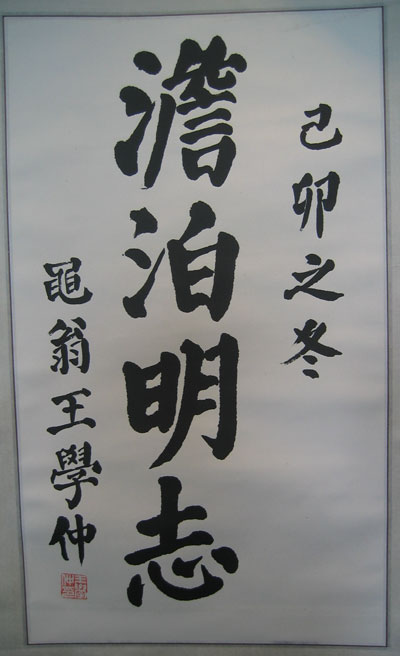 己卯之冬
澹泊明志
黽翁王學仲